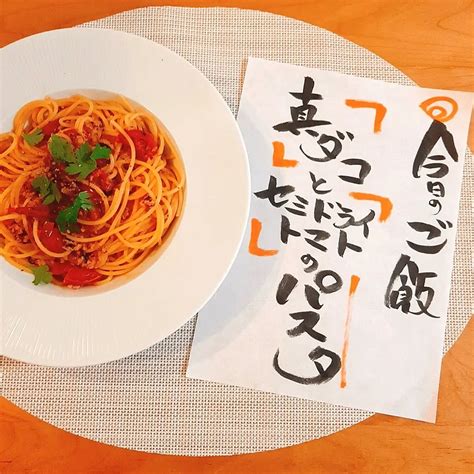 今日のご飯
「真ダコ」と
「セミドライ
トマト」のパスタ